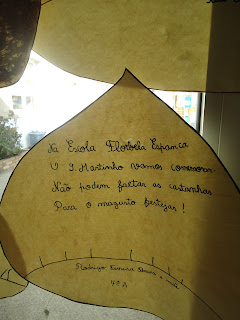 Na Escola Florbela Espanca
O S. Martinho vamos comemorar
Não podem faltar as castanhas
Para o magusto festejar!
Rodrigo
4º A